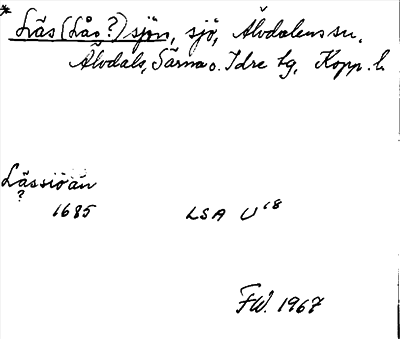 * Läs (Lå o ?) sjön, sjö, Älvdalens sn,
Älvdals, Särna o. Idre tg, Kopp. l.
Lässiöän
?
1685 LSA U 18
FW. 1967